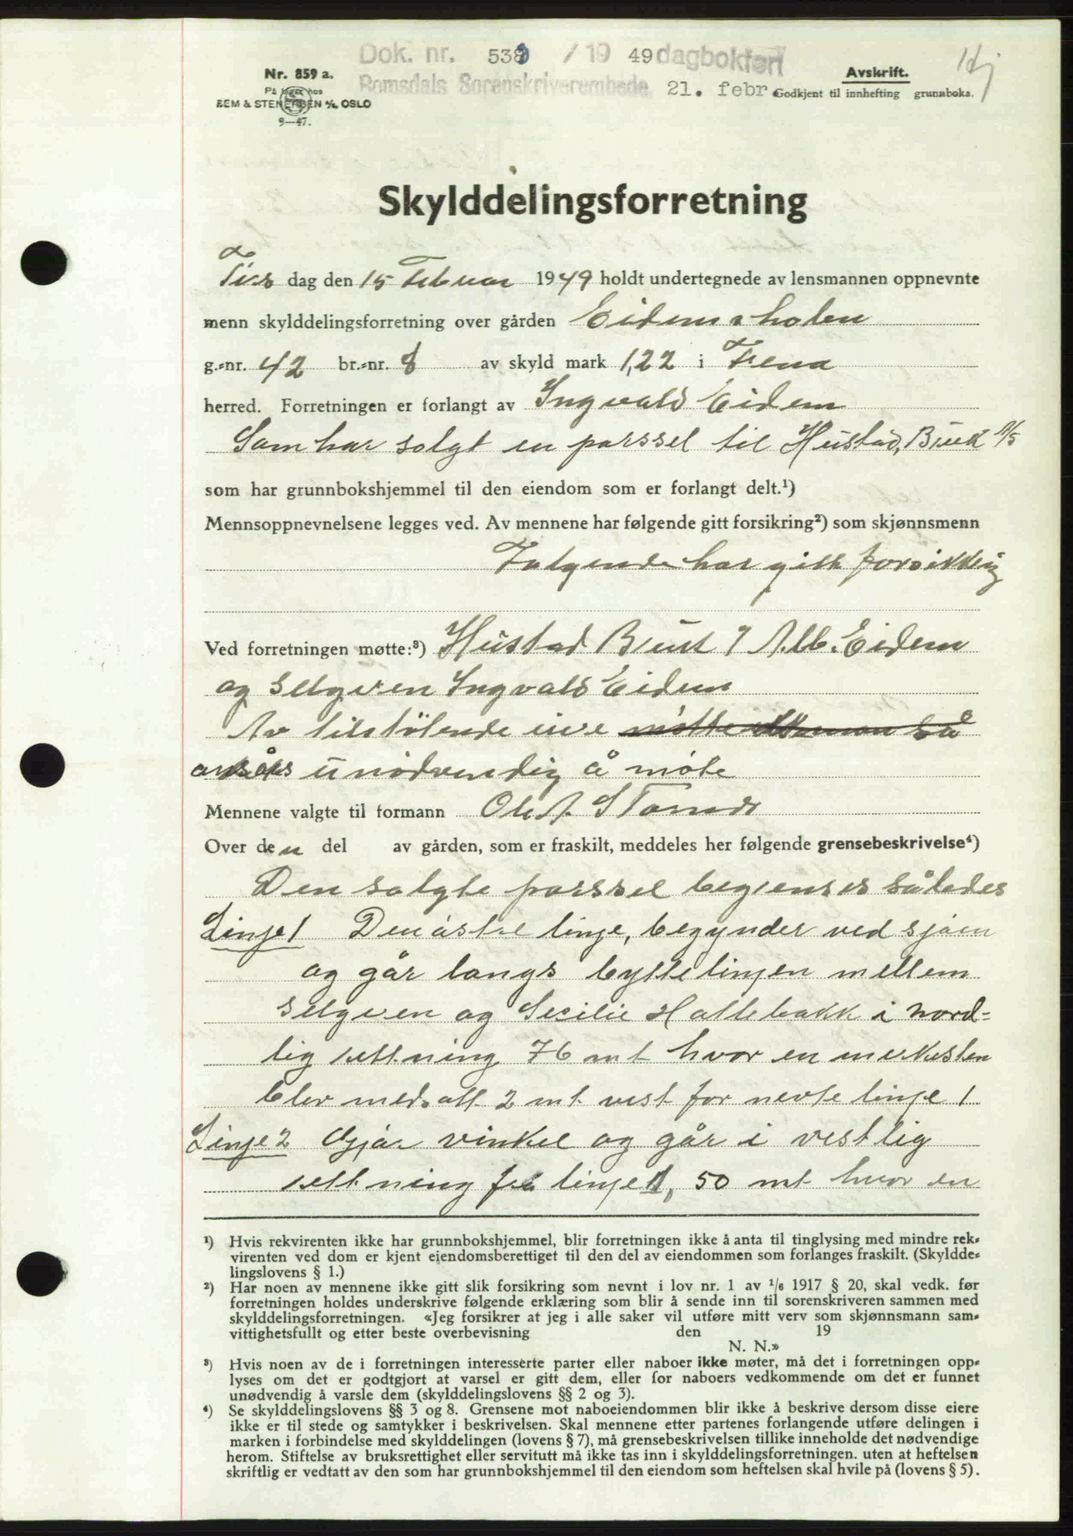 Dok. nr. 538 / 19 49 dagbokført
Romsdals Sorenskriverembede 21. febr
Nr. 859 a.
På lager hos
SEM & STENERSEN A/S OSLO
9—47.
Avskrift.
Godkjent til innhefting grunnboka.
Skylddelingsforretning
Tirs dag den 15 Februar 1949 holdt undertegnede av lensmannen oppnevnte
menn skylddelingsforretning over gården Eidemsholen
g.-nr. 42 br.-nr. 8 av skyld mark 1,22 i Frena
herred. Forretningen er forlangt av Ingvald Eidem
Som har solgt en parssel til Hustad Bruk A/S
som har grunnbokshjemmel til den eiendom som er forlangt delt.¹)
Mennsoppnevnelsene legges ved. Av mennene har følgende gitt forsikring²) som skjønnsmenn
Følgende har gitt forsikkring
Ved forretningen møtte:³) Hustad Bruk / Alb. Eidem
og selgeren Ingvald Eidem
Av tilstøtende eire
ansåes unødvendig å møte
Mennene valgte til formann Ole A. Strande
Over den del av gården, som er fraskilt, meddeles her følgende grensebeskrivelse⁴)
Den solgte parssel begrenses således
Linje 1 Den østre linje, begynder ved sjøen
og går langs byttelinjen mellem
selgeren og Secilie Hattebakk i nord-
lig rettning 76 mt hvor en merkesten
blev medsatt 2 mt vest for nevte linje 1
Linje 2 Gjør vinkel og går i vestlig
rettning fra linje 1, 50 mt hvor en
¹) Hvis rekvirenten ikke har grunnbokshjemmel, blir forretningen ikke å anta til tinglysing med mindre rek-
virenten ved dom er kjent eiendomsberettiget til den del av eiendommen som forlanges fraskilt. (Skyldde-
lingslovens § 1.)
²) Har noen av mennene ikke gitt slik forsikring som nevnt i lov nr. 1 av 1/6 1917 § 20, skal vedk. før
forretningen holdes underskrive følgende erklæring som blir å sende inn til sorenskriveren sammen med
skylddelingsforretningen. «Jeg forsikrer at jeg i alle saker vil utføre mitt verv som skjønnsmann sam-
vittighetsfullt og etter beste overbevisning den 19
N. N.»
³) Hvis noen av de i forretningen interesserte parter eller naboer ikke møter, må det i forretningen opp-
lyses om det er godtgjort at varsel er gitt dem, eller for naboers vedkommende om det er funnet
unødvendig å varsle dem (skylddelingslovens §§ 2 og 3).
⁴) Se skylddelingslovens §§ 3 og 8. Grensene mot naboeiendommen blir ikke å beskrive dersom disse eiere
ikke er til stede og samtykker i beskrivelsen. Skal mennene etter partenes forlangende utføre delingen i
marken i forbindelse med skylddelingen (lovens § 7), må grensebeskrivelsen tillike inneholde det nødvendige
herom. Stiftelse av bruksrettighet eller servitutt må ikke tas inn i skylddelingsforretningen. uten at heftelsen
skriftlig er vedtatt av den som har grunnbokshjemmel til den eiendom som heftelsen skal hvile på (lovens § 5).